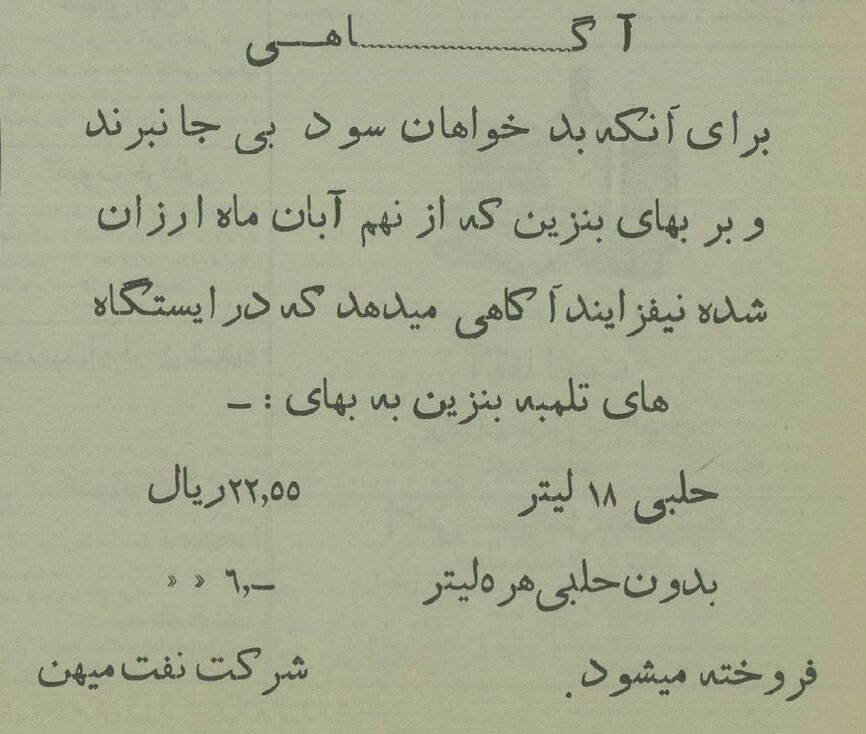 آگـــــــاهـــی
برای آنکه بد خواهان سود بی جا نبرند
و بر بهای بنزین که از نهم آبان ماه ارزان
شده نیفزایند آکاهی میدهد که در ایستگاه
های تلمبه بنزین به بهای : ـ
حلبی ۱۸ لیتر ۲۲,۵۵ ریال
بدون حلبی هر ۵ لیتر ـ,٦ » »
فروخته میشود. شرکت نفت میهن